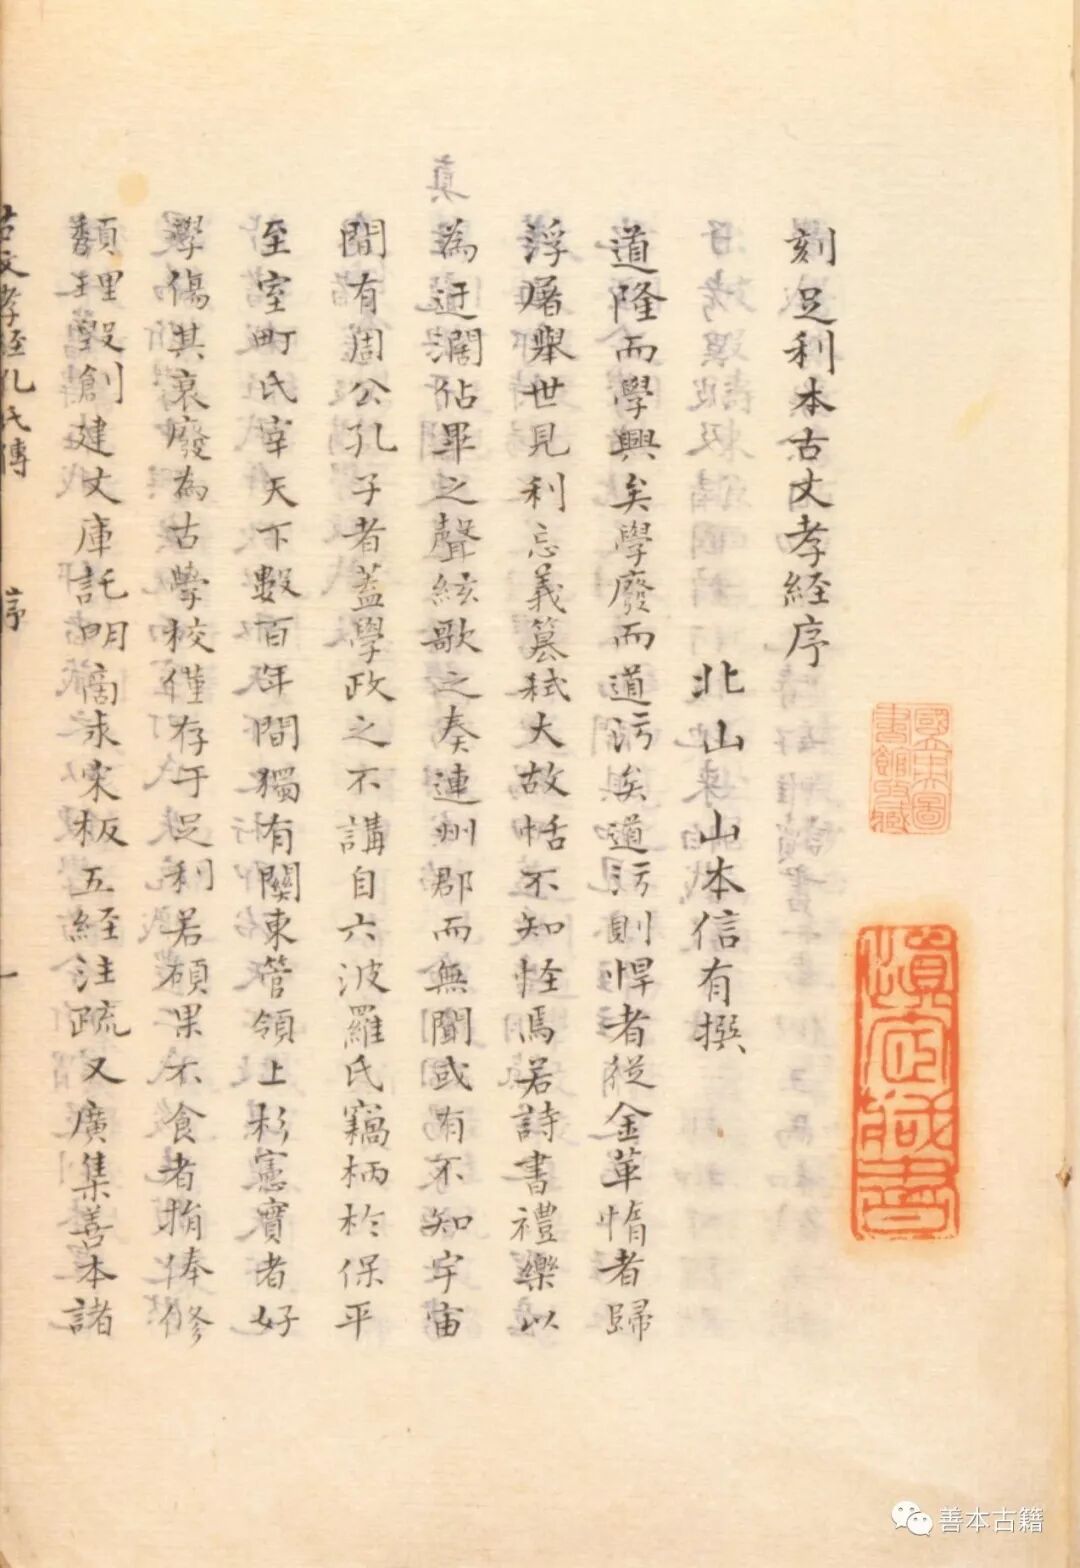 刻足利本古文孝經序
北山 山本信有撰
道隆而學興矣學廢而道污矣道污則悍者從金革惰者歸
浮屠舉世見利忘義簒弒大故恬不知怪焉若詩書禮樂以
真
為迂濶佔畢之聲絃歌之奏連州郡而無聞或有不知宇宙
間有周公孔子者蓋學政之不講自六波羅氏竊柄於保平
至室町氏宰天下數百年間獨有關東管領上杉憲實者好
學傷其衰廢為古學校僅存于足利若碩果不食者捐俸修
頹理毀創建文庫託明商求宋板五經注疏又廣集善本諸
古文孝經孔氏傳
序
一
國立北京圖書館收藏
善本古籍